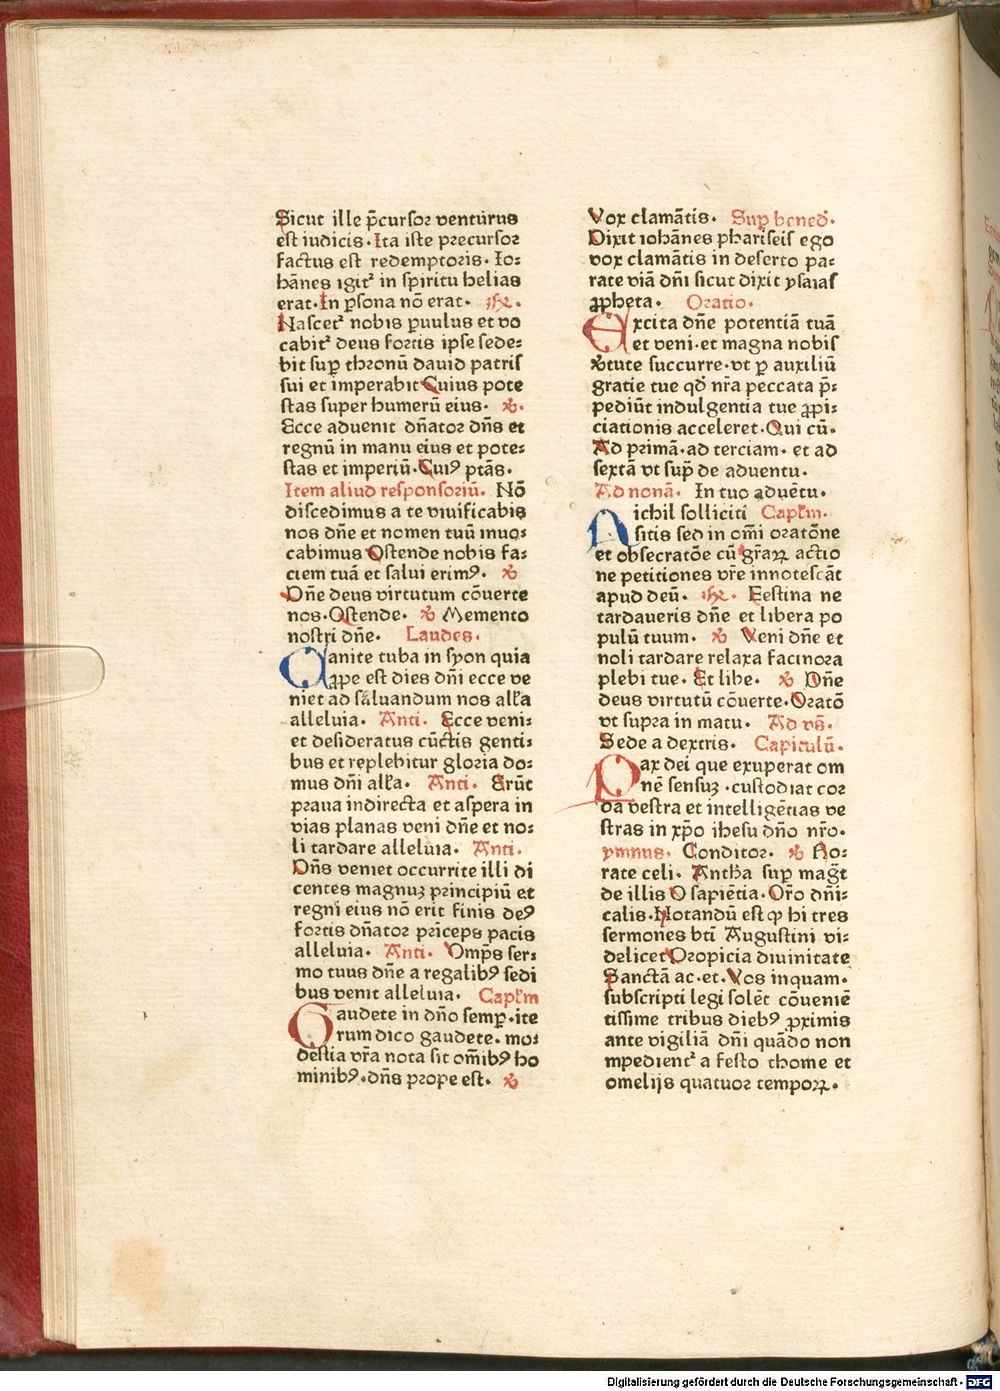 Sicut ille p̄cursor venturus
est iudicis. Ita iste precursor
factus est redemptoris. Io:
hānes igit² in spiritu helias
erat. In ꝑsona nō erat. ℟.
Nascet² nobis ꝑuulus et vo
cabit² deus fortis ipse sede:
bit suꝑ thronū dauid patris
sui et imperabit Cuius pote
stas super humerū eius. ℣.
Ecce aduenit dn̄ator dn̄s et
regnū in manu eius et pote:
stas et imperiū. Cuiꝰ ptās.
Item aliud responsoriū. Nō
discedimus a te viuificabis
nos dn̄e et nomen tuū inuo:
cabimus Ostende nobis fa:
ciem tuā et salui erimꝰ. ℣
Dn̄e deus virtutum cōuerte
nos. Ostende. ℣ Memento
nostri dn̄e. Laudes.
Canite tuba in syon quia
ꝓpe est dies dn̄i ecce ve
niet ad saluandum nos all̄a
alleluia. Anti. Ecce veni:
et desideratus cūctis genti:
bus et replebitur gloria do:
mus dn̄i all̄a. Anti. Erūt
praua indirecta et aspera in
vias planas veni dn̄e et no:
li tardare alleluia. Anti.
Dn̄s veniet occurrite illi di
centes magnuʒ principiū et
regni eius nō erit finis deꝰ
fortis dn̄ator prīceps pacis
alleluia. Anti. Omp̄s ser:
mo tuus dn̄e a regalibꝰ sedi
bus venit alleluia. Capl̄m
Gaudete in dn̄o semꝑ. ite
rum dico gaudete. mo:
destia vr̄a nota sit om̄ibꝰ ho
minibꝰ. dn̄s prope est. ℣
Vox clamātis. Suꝑ bened̄.
Dixit iohānes phariseis ego
vox clamātis in deserto pa:
rate viā dn̄i sicut dixit ysaias
ꝓpheta. Oratio.
Excita dn̄e potentiā tuā
et veni. et magna nobis
℣tute succurre. vt ꝑ auxiliū
gratie tue qd̄ nr̄a peccata p̄:
pediūt indulgentia tue ꝓpi:
ciationis acceleret. Qui cū.
Ad primā. ad terciam. et ad
sextā vt sup̄ de aduentu.
Ad nonā. In tuo aduētu.
Nichil solliciti Capl̄m.
sitis sed in om̄i oratōne
et obsecratōe cū gr̄aꝝ actio
ne petitiones vr̄e innotescāt
apud deū. ℟. Festina ne
tardaueris dn̄e et libera po
pulū tuum. ℣ Veni dn̄e et
noli tardare relaxa facinora
plebi tue. Et libe. ℣ Dn̄e
deus virtutū cōuerte. Oratō
vt supra in matu. Ad vs̄.
Sede a dextris. Capitulū.
Pax dei que exuperat om
nē sensuʒ. custodiat cor
da vestra et intelligētias ve
stras in xp̄o ihesu dn̄o nr̄o.
ymnus. Conditor. ℣ Ro:
rate celi. Antha suꝑ mag̅t
de illis O sapiētia. Or̄o dn̄i:
calis. Notandū est ꝙ hi tres
sermones bt̄i Augustini vi:
delicet Propicia diuinitate
Sanctā ac. et. Vos inquam.
subscripti legi solēt cōueniē
tissime tribus diebꝰ ꝓximis
ante vigiliā dn̄i quādo non
mpedient² a festo thome et
omelijs quatuor tempoꝝ.
Digitalisierung gefördert durch die Deutsche Forschungsgemeinschaft - DFG